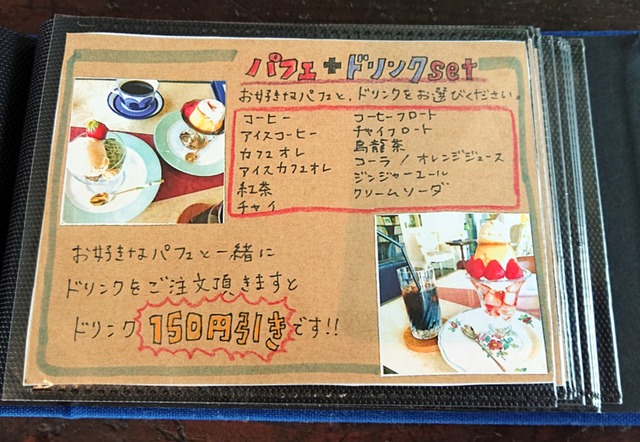 パフェ+ドリンクset
お好きなパフェと、ドリンクをお選びください。
コーヒー
アイスコーヒー
カフェオレ
アイスカフェオレ
紅茶
チャイ
コーヒーフロート
チャイフロート
烏龍茶
コーラ / オレンジジュース
ジンジャーエール
クリームソーダ
お好きなパフェと一緒に
ドリンクをご注文頂きますと
ドリンク150円引きです!!